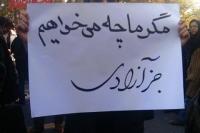 مگر ما چه می‌خواهیم
جز آزادی